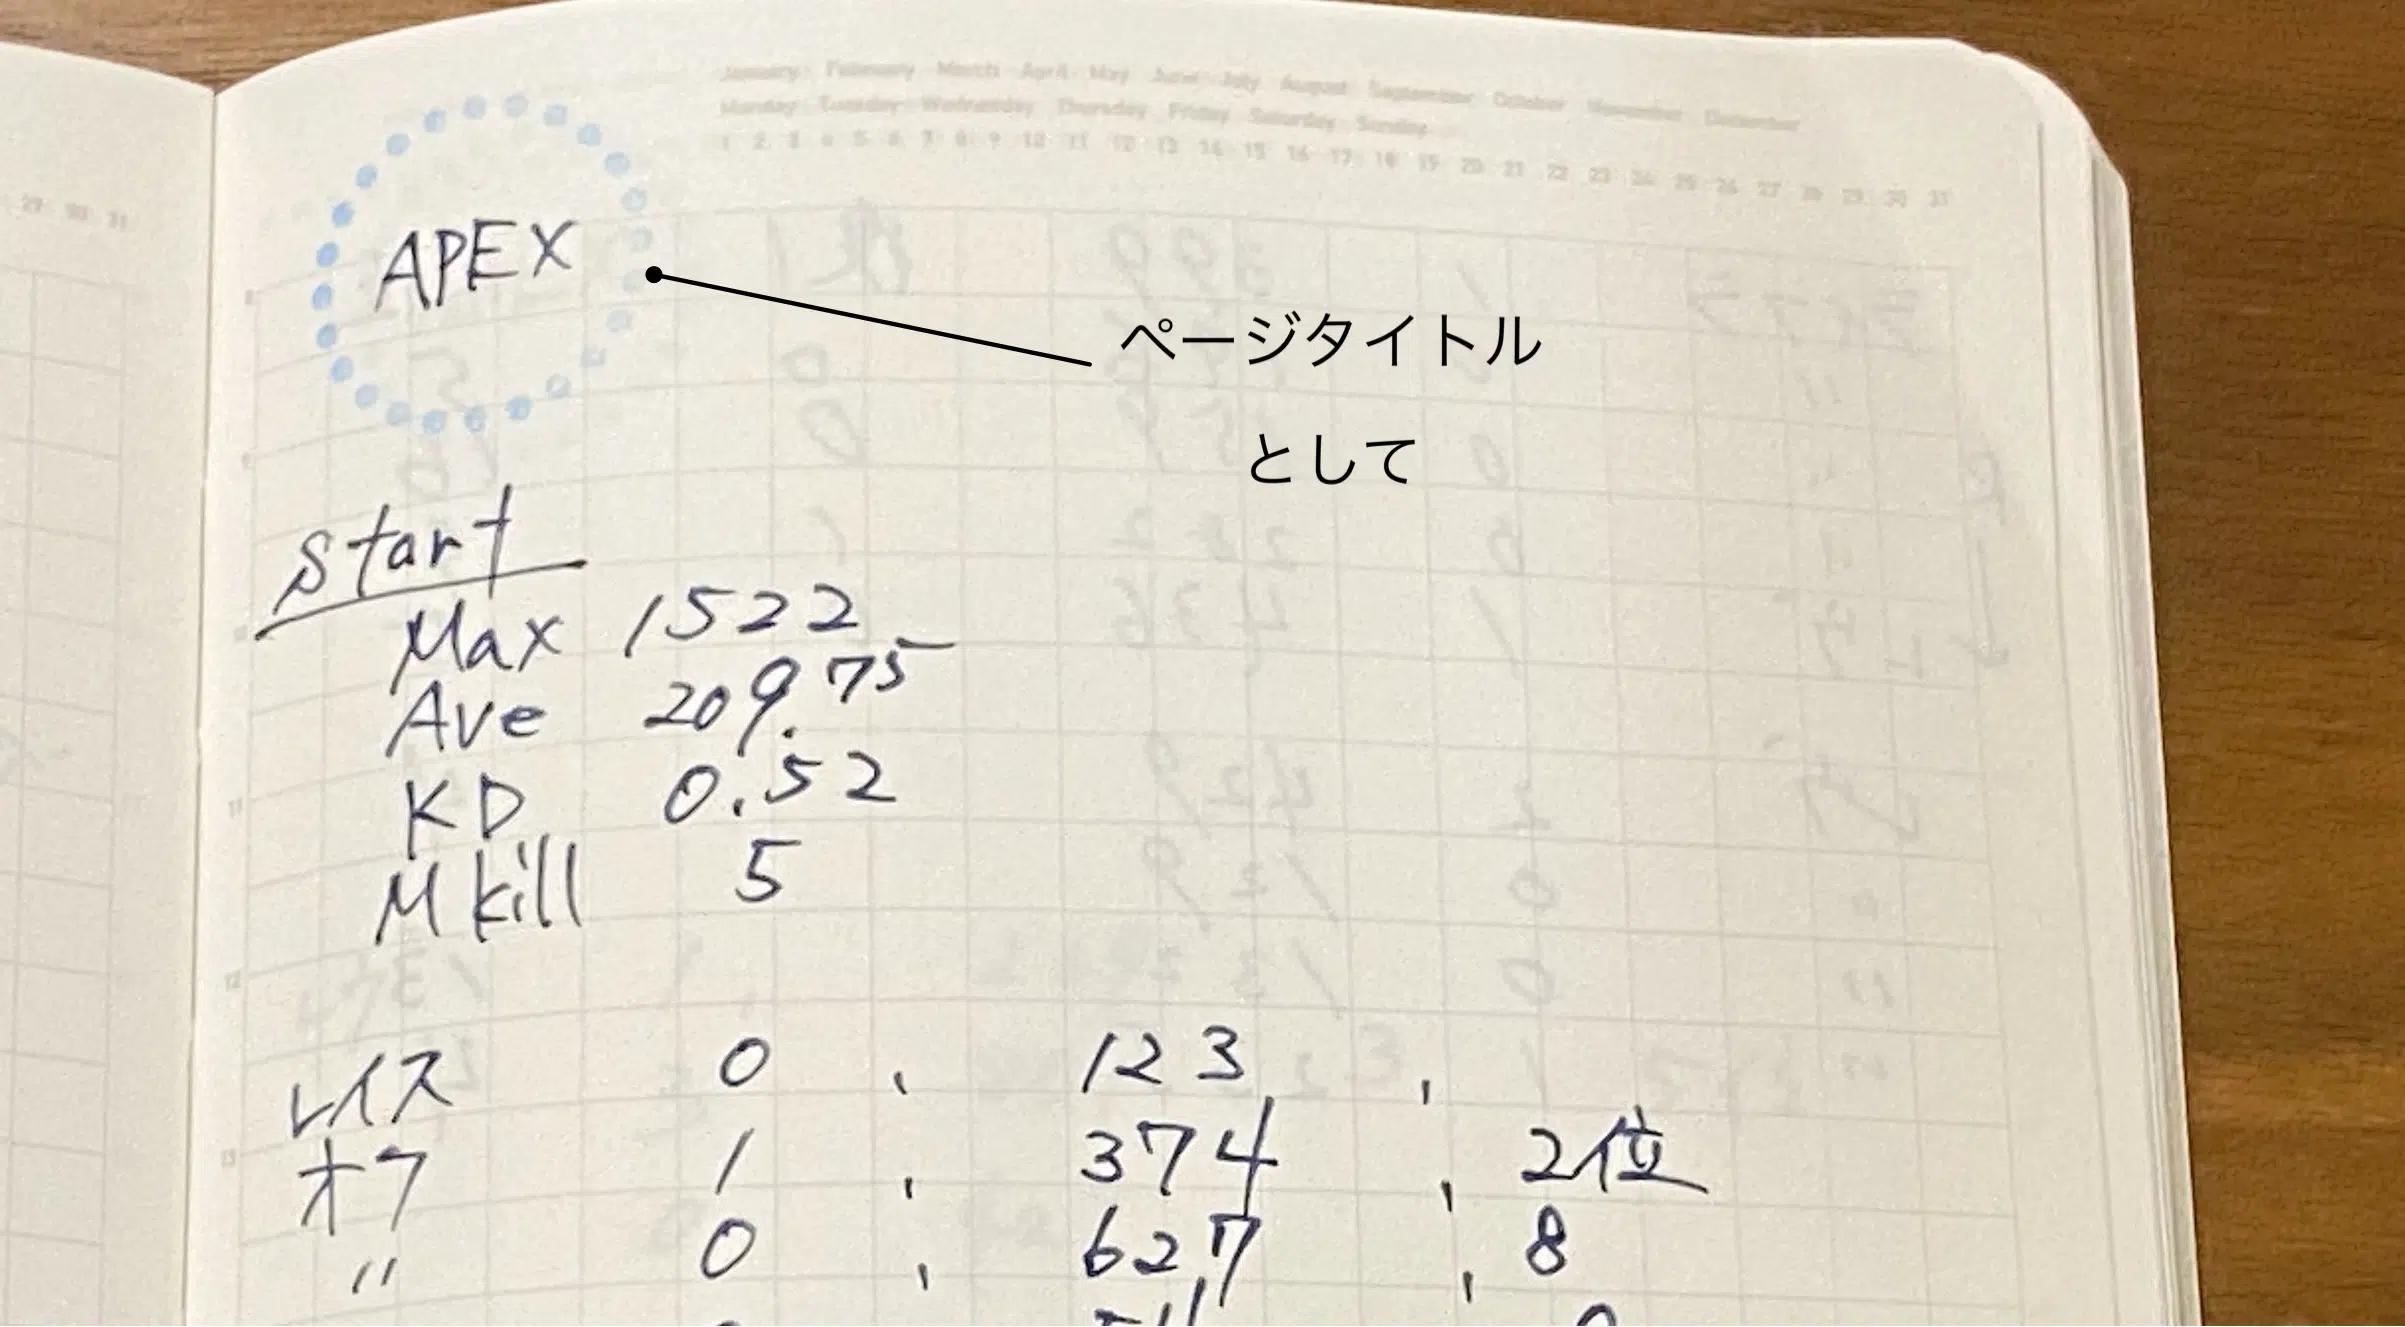 January February March April May June July August September October November December
Monday Tuesday Wednesday Thursday Friday Saturday Sunday
1 2 3 4 5 6 7 8 9 10 11 12 13 14 15 16 17 18 19 20 21 22 23 24 25 26 27 28 29 30 31
29 30 31
APEX
ページタイトル
として
start
Max 1522
Ave 209.75
KD 0.52
M kill 5
レイス 0 , 123 ,
オク 1 , 374 , 2位
〃 0 , 627 , 8